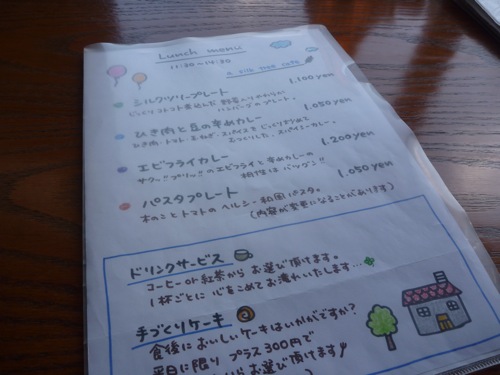 Lunch menu
11:30〜14:30
a silk tree cafe
シルクツリープレート 1.100yen
じっくりコトコト煮込んだ 野菜入りやわらか
ハンバーグのプレート。
ひき肉と豆の辛めカレー 1.050yen
ひき肉・トマト・玉ねぎ・スパイスをじっくり炒めて
スパイシーカレー。
エビフライカレー 1.200yen
サクッ!!プリッ!!のエビフライと辛めカレーの
相性はバツグン!!
パスタプレート 1.050yen
木のことトマトのヘルシー和風パスタ。
(内容が変更になることがあります)
ドリンクサービス
コーヒーor紅茶からお選び頂けます。
1杯ごとに心をこめてお淹れいたします…
手づくりケーキ
食後においしいケーキはいかがですか?
平日に限り プラス300円で
お選び頂けます